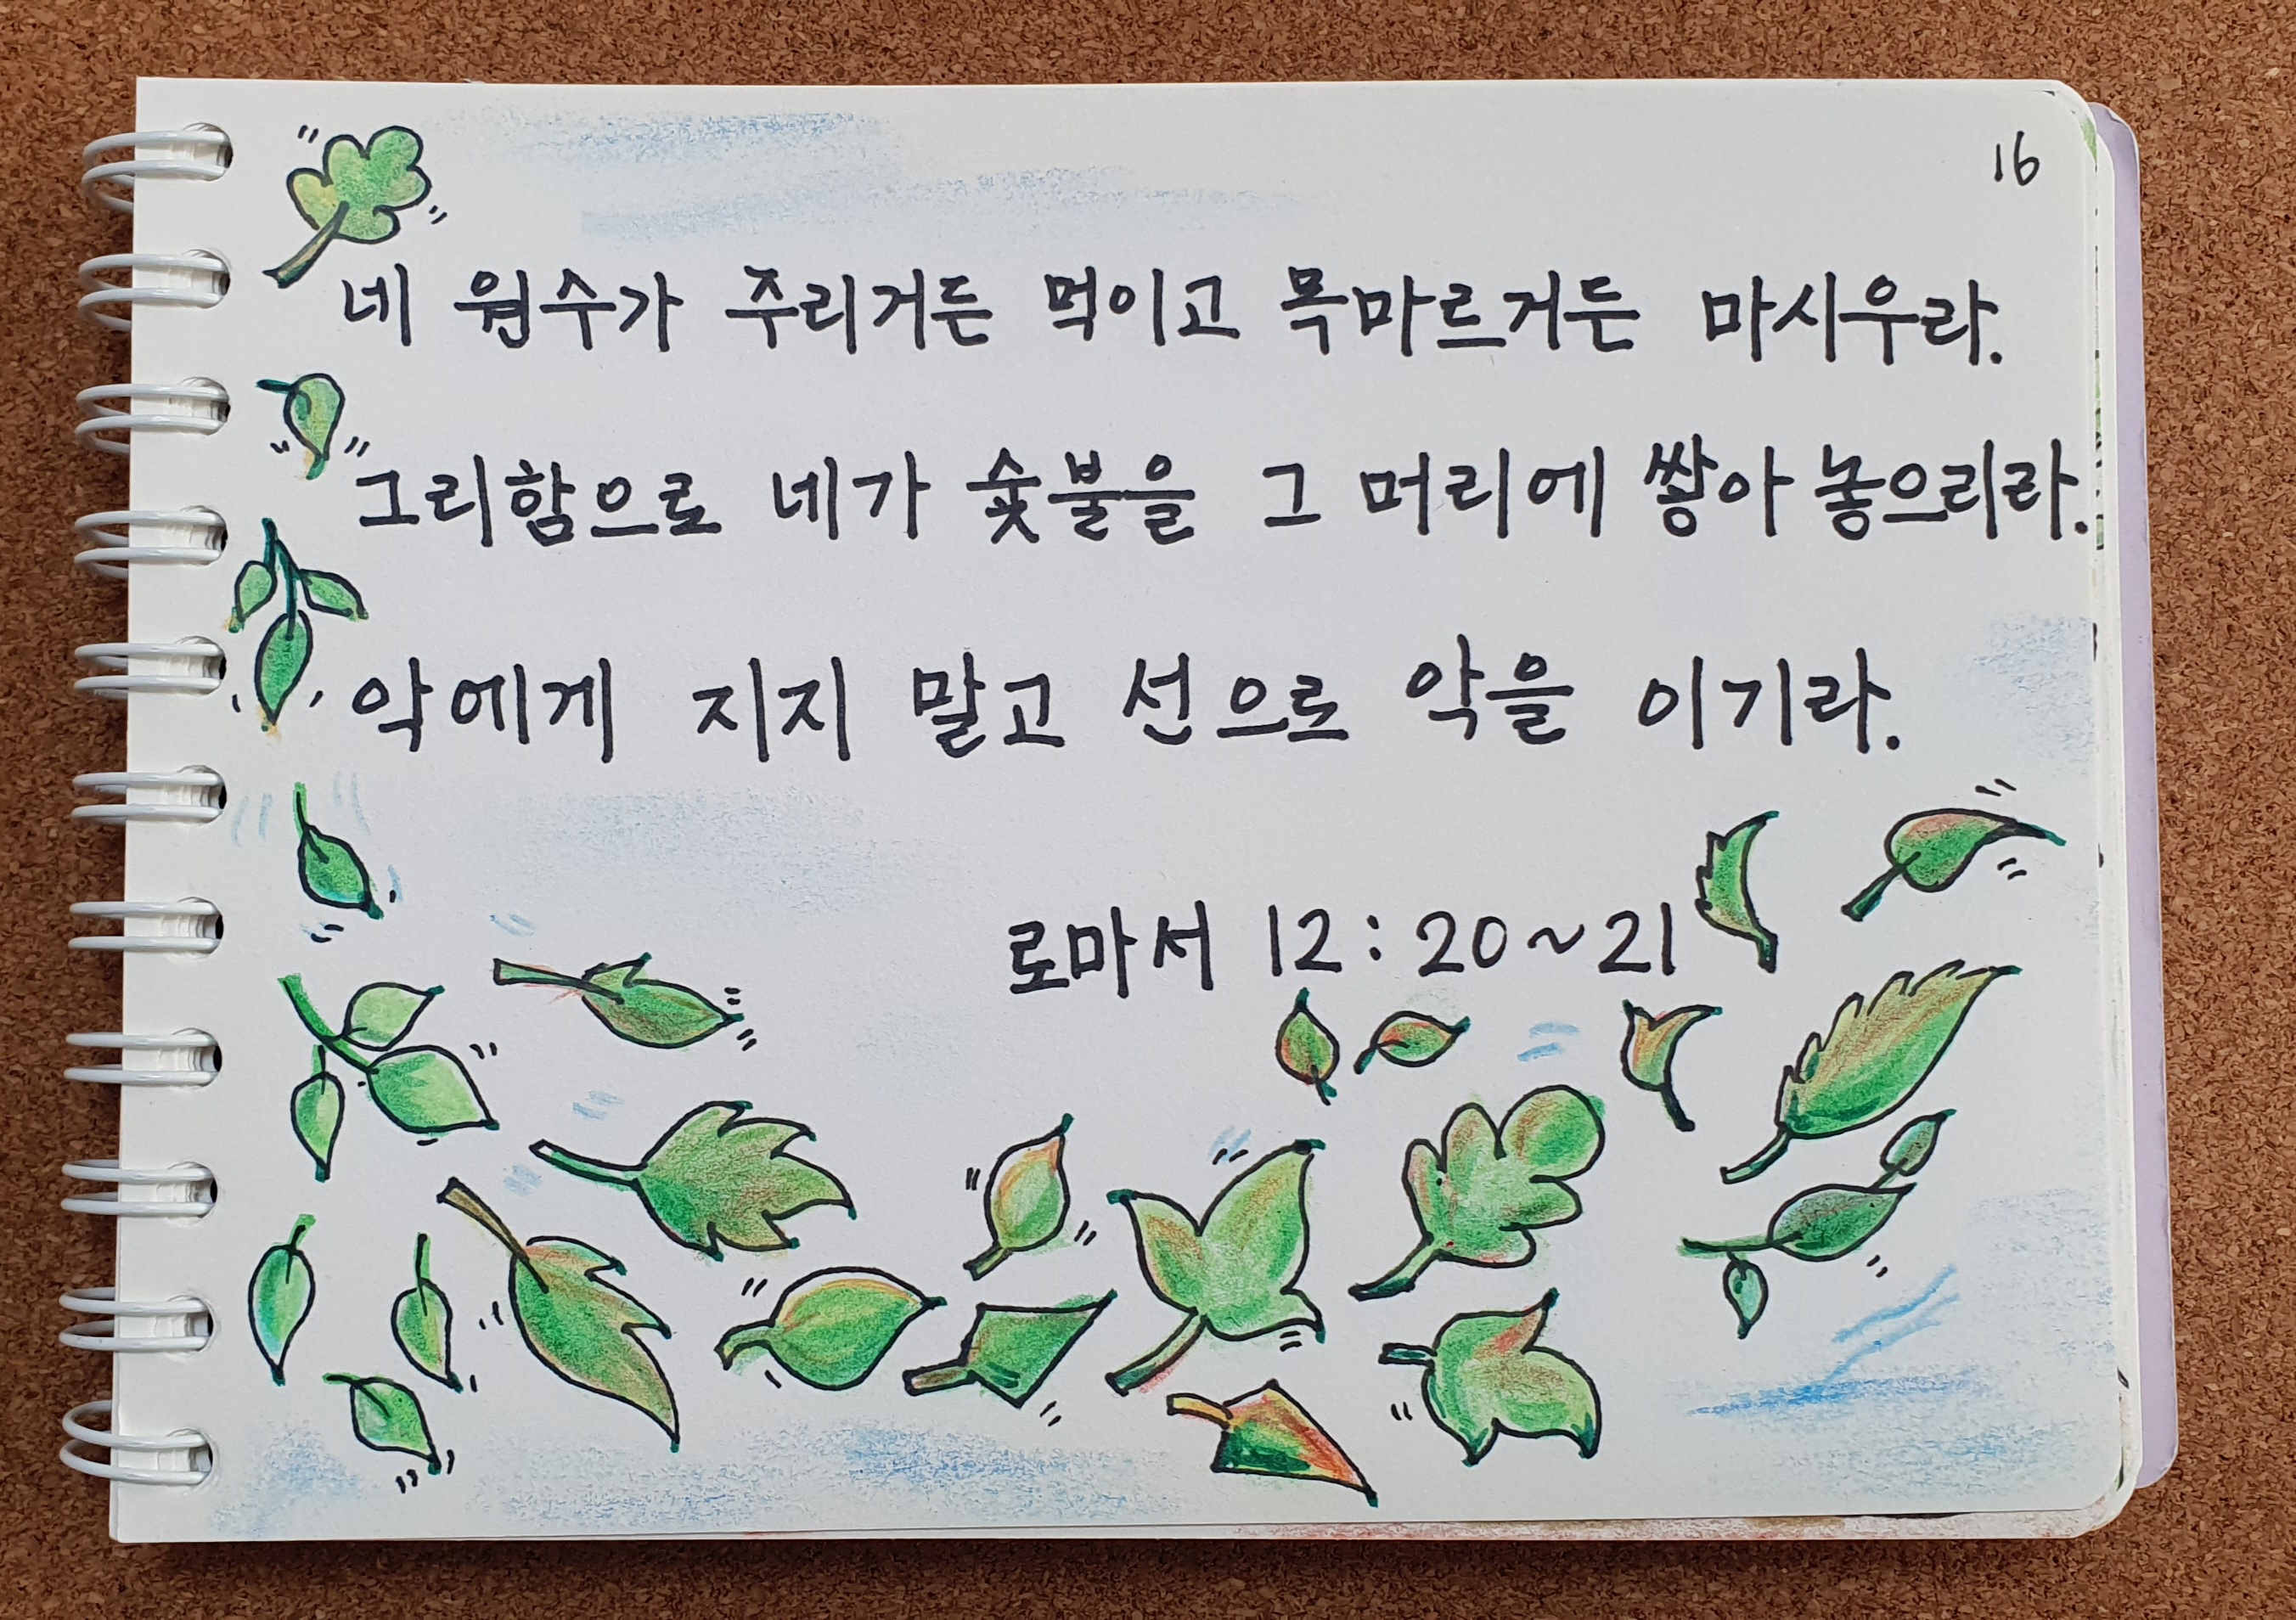 16
네 원수가 주리거든 먹이고 목마르거든 마시우라.
그리함으로 네가 숯불을 그 머리에 쌓아 놓으리라.
악에게 지지 말고 선으로 악을 이기라.
로마서 12:20~21